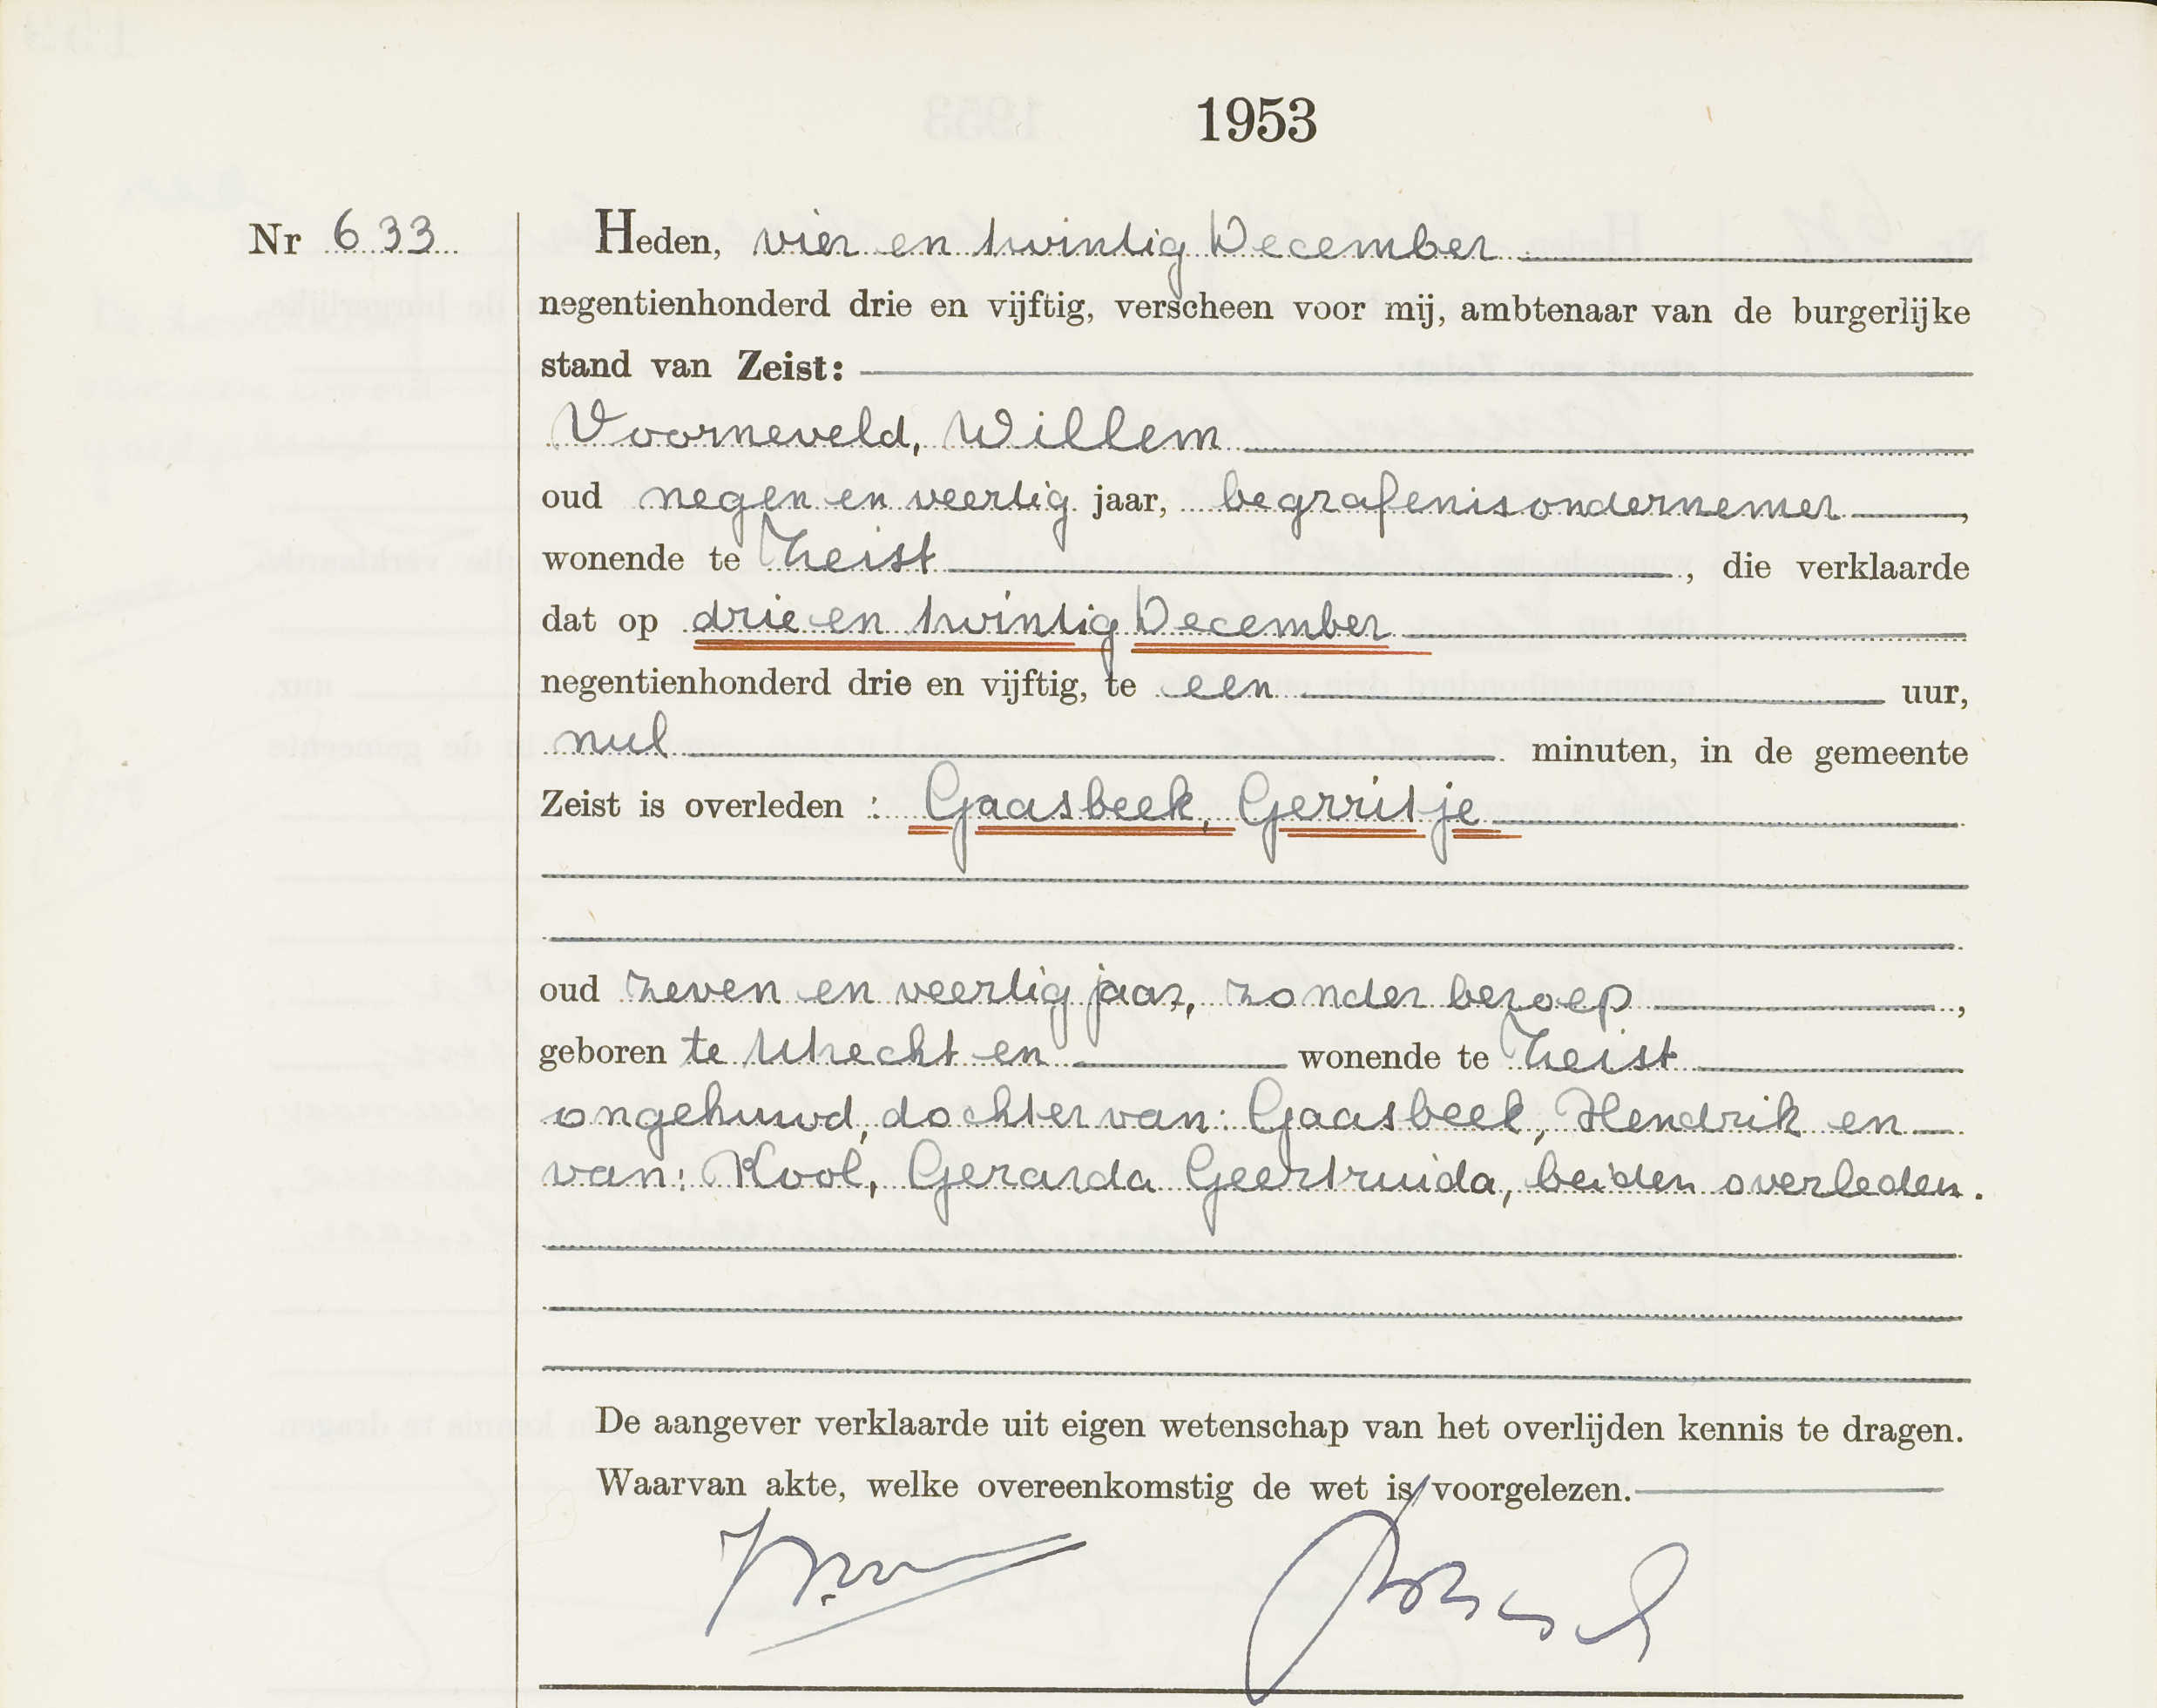 1953
Nr 633
Heden, vier en twintig December
negentienhonderd drie en vijftig, verscheen voor mij, ambtenaar van de burgerlijke
stand van Zeist:
Voorneveld, Willem
oud negen en veertig jaar, begrafenisondernemer ,
wonende te Zeist , die verklaarde
dat op drie en twintig December
negentienhonderd drie en vijftig, te een uur,
nul minuten, in de gemeente
Zeist is overleden : Gaasbeek, Gerritje
oud zeven en veertig jaar, zonder beroep ,
geboren te Utrecht en wonende te Zeist
ongehuwd, dochter van: Gaasbeek, Hendrik en
van: Kool, Gerarda Geertruida, beiden overleden.
De aangever verklaarde uit eigen wetenschap van het overlijden kennis te dragen.
Waarvan akte, welke overeenkomstig de wet is voorgelezen.